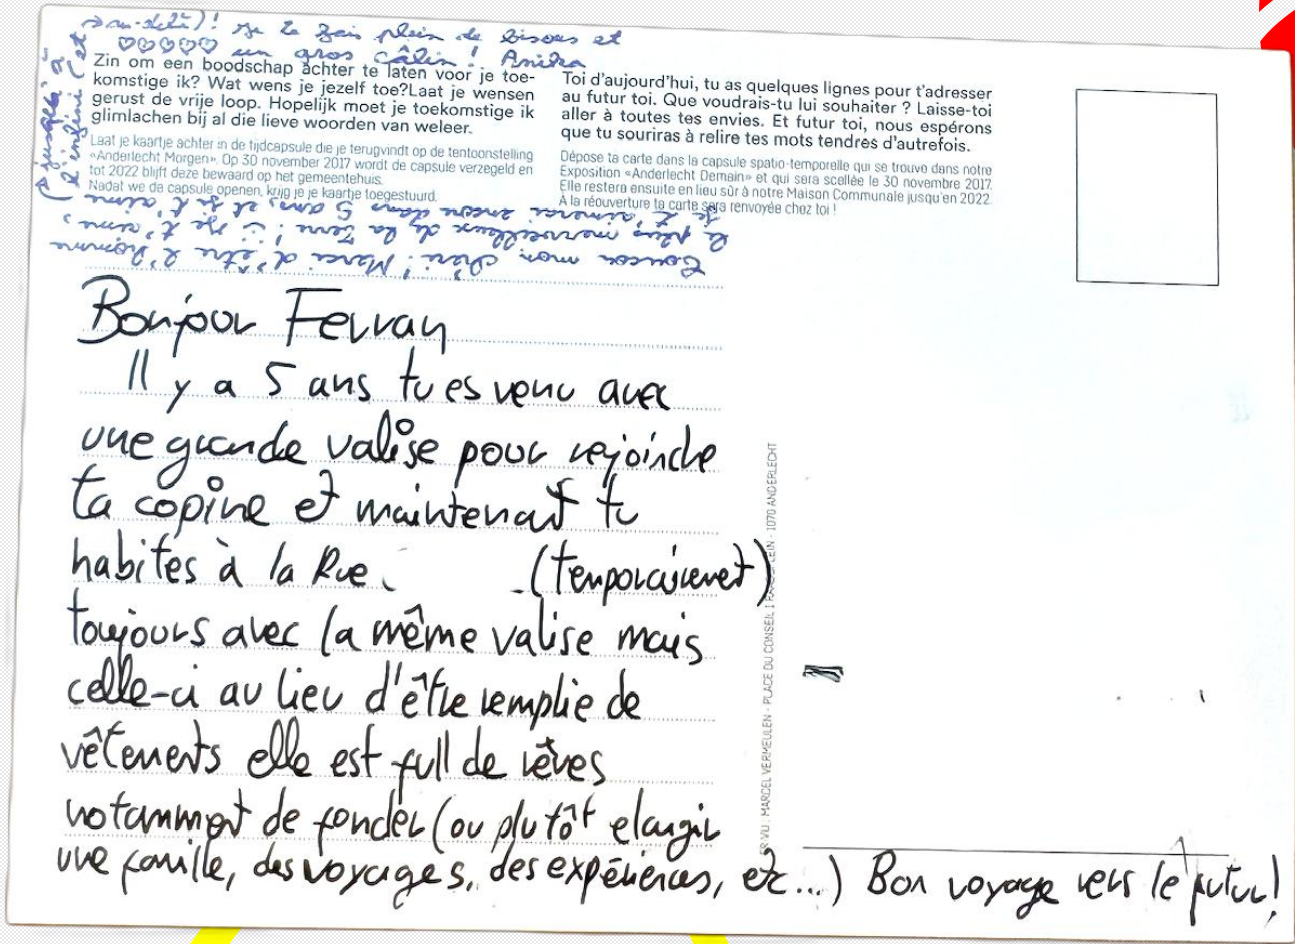 Zin om een boodschap achter te laten voor je toe-
komstige ik? Wat wens je jezelf toe?Laat je wensen
gerust de vrije loop. Hopelijk moet je toekomstige ik
glimlachen bij al die lieve woorden van weleer.
Laat je kaartje achter in de tijdcapsule die je terugvindt op de tentoonstelling
«Anderlecht Morgen». Op 30 november 2017 wordt de capsule verzegeld en
tot 2022 blijft deze bewaard op het gemeentehuis.
Nadat we de capsule openen, krijg je je kaartje toegestuurd.
Toi d'aujourd'hui, tu as quelques lignes pour t'adresser
au futur toi. Que voudrais-tu lui souhaiter ? Laisse-toi
aller à toutes tes envies. Et futur toi, nous espérons
que tu souriras à relire tes mots tendres d'autrefois.
Dépose ta carte dans la capsule spatio-temporelle qui se trouve dans notre
Exposition «Anderlecht Demain» et qui sera scellée le 30 novembre 2017.
Elle restera ensuite en lieu sûr à notre Maison Communale jusqu'en 2022.
A la réouverture ta carte sera renvoyée chez toi !
Coucou mon chéri! Merci d'être l'homme
le plus merveilleux de la Terre! :) je t'aime,
je t'aimerai encore dans 5 ans, et je t'aime
jusqu'à
l'infini (et
au-delà)! Je te fais plein de bisous et
♡♡♡♡♡ un gros câlin! Anitra
Bonjour Ferran
Il y a 5 ans tu es venu avec
une grande valise pour rejoindre
ta copine et maintenant tu
habites à la Rue (temporairement)
toujours avec la même valise mais
celle-ci au lieu d'être remplie de
vêtements elle est full de rêves
notamment de fonder (ou plutôt elargir
une famille, des voyages, des expériences, etc...) Bon voyage vers le futur!
ER/VU : MARCEL VERMEULEN - PLACE DU CONSEIL 1 - 1070 ANDERLECHT